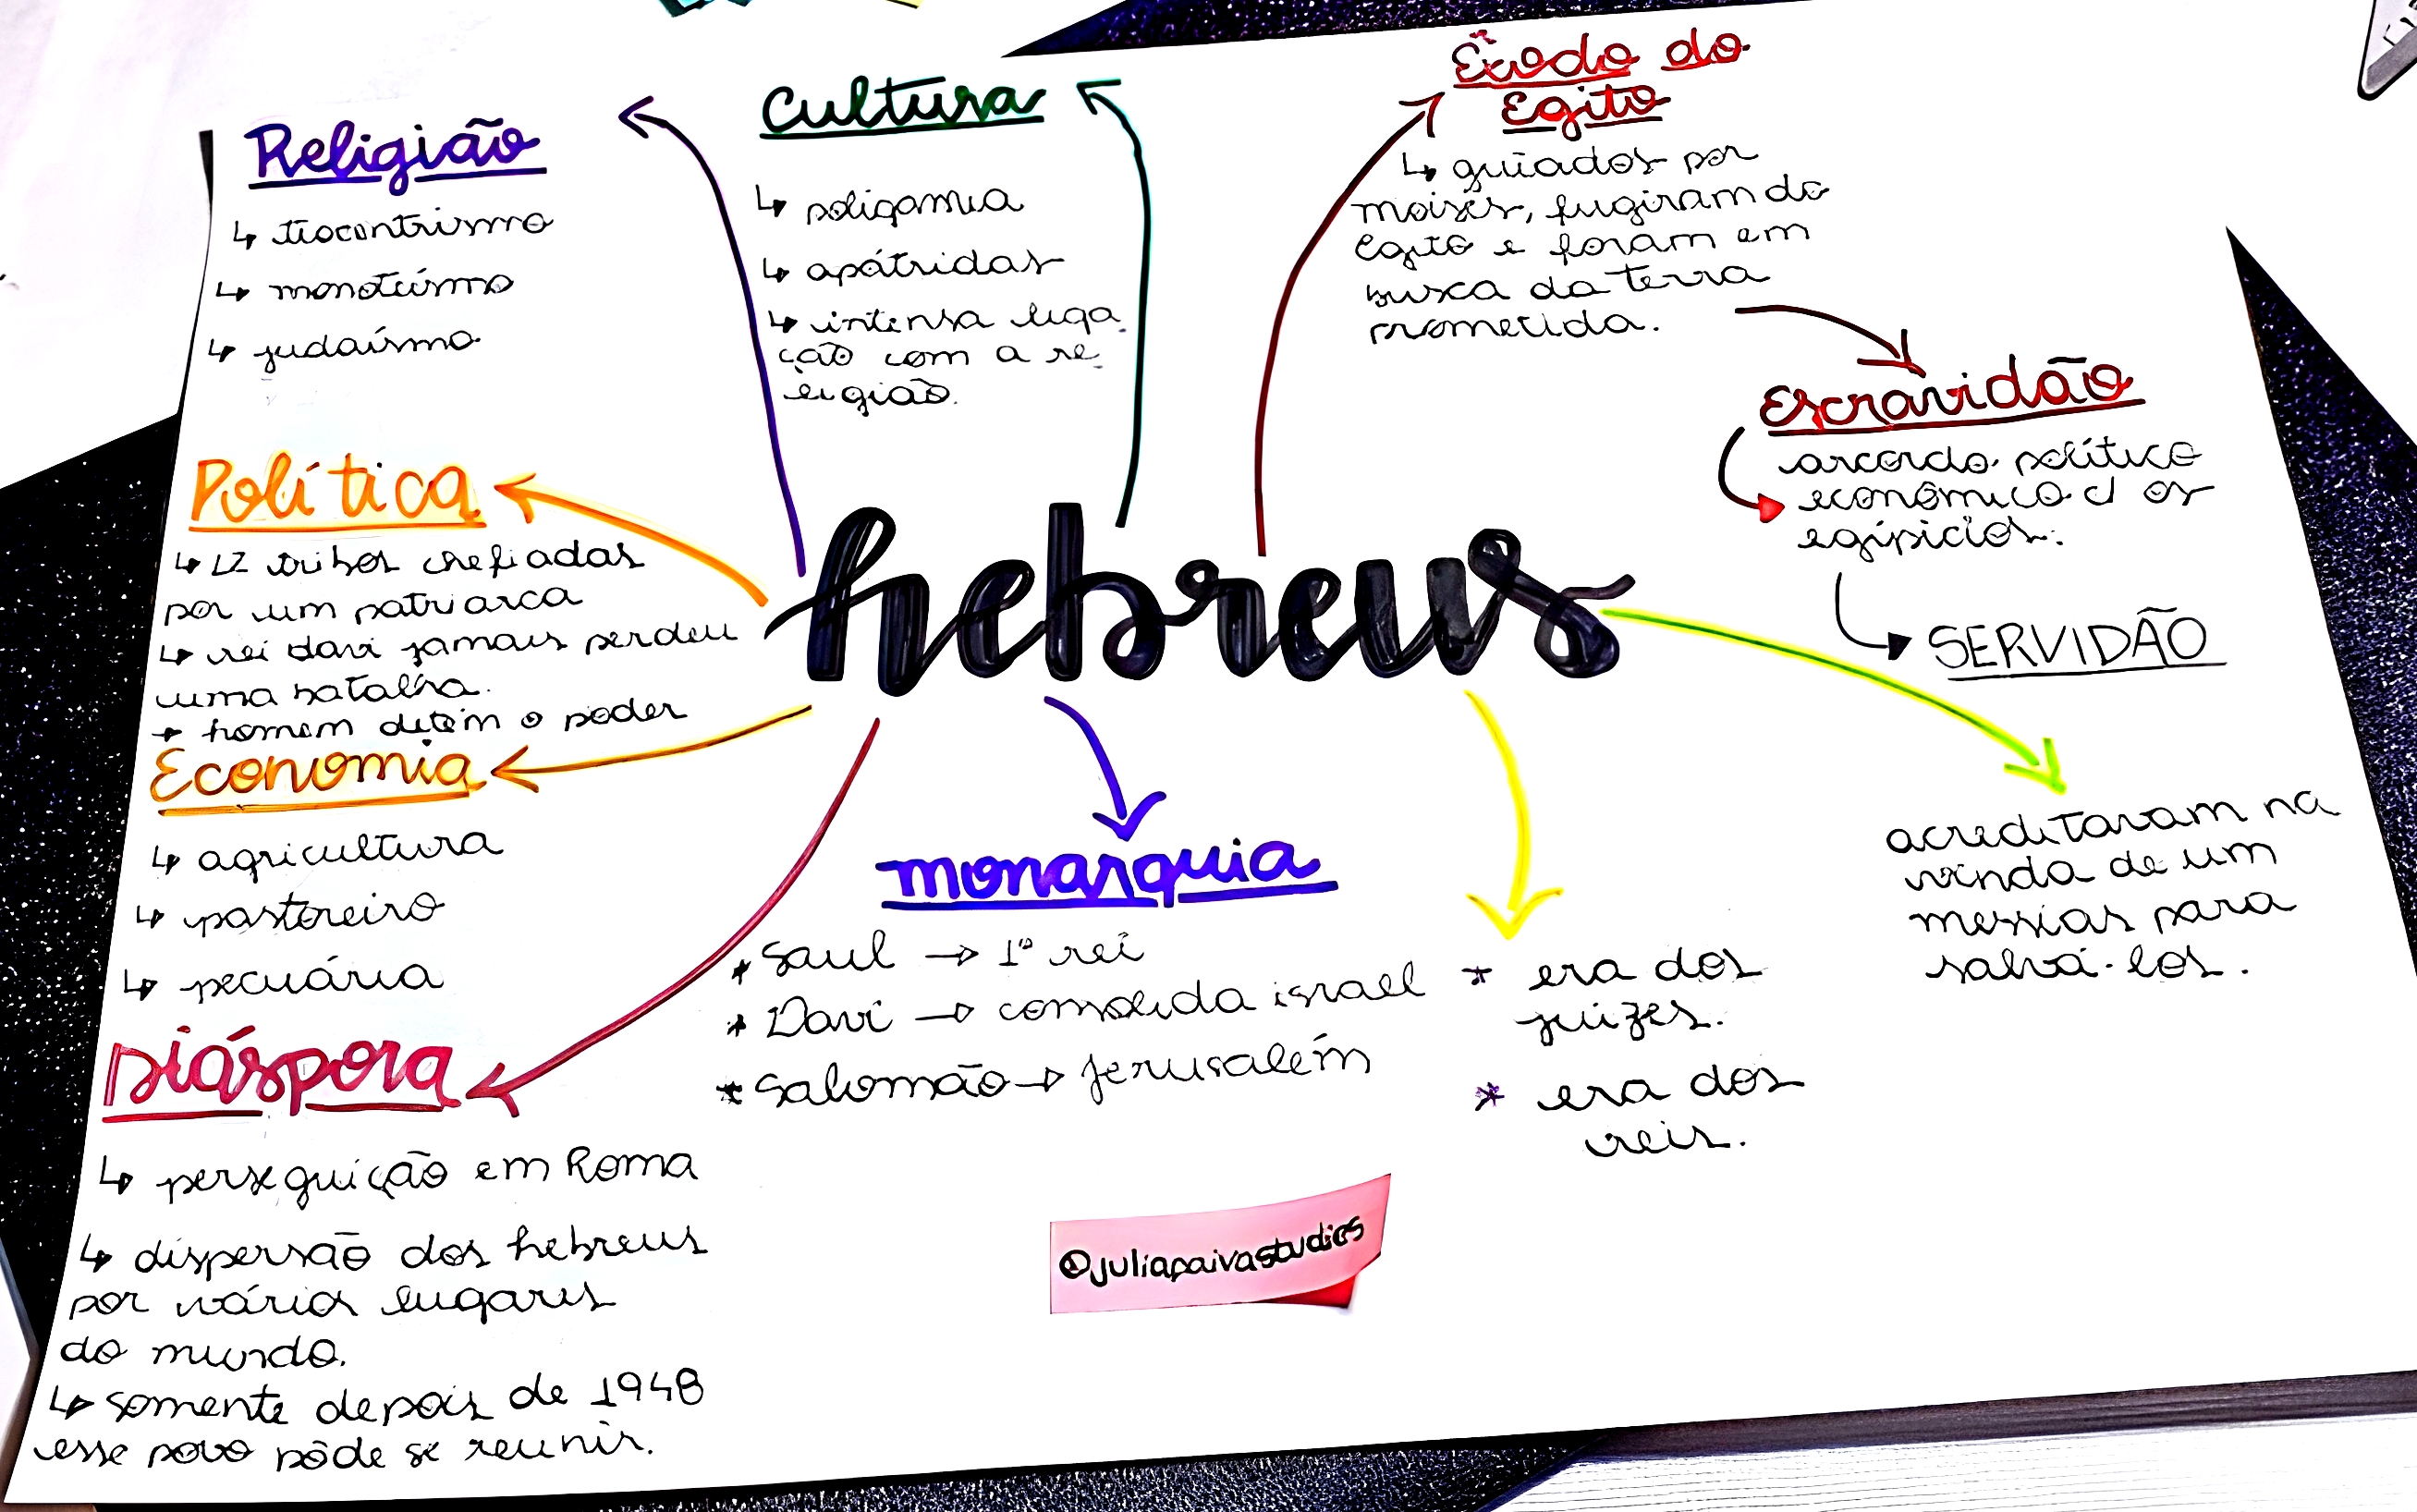 Religião
↳ teocentrismo
↳ monoteísmo
↳ judaísmo
Cultura
↳ poligamia
↳ apátridas
↳ intensa liga
ção com a re
ligião.
Êxodo do
Egito
↳ guiados por
moisés, fugiram do
Egito e foram em
busca da terra
prometida.
Escravidão
acordo político
econômico c/ os
egípicios.
SERVIDÃO
Política
↳ 12 tribos chefiadas
por um patriarca
↳ rei davi jamais perdeu
uma batalha.
→ homem detém o poder
hebreus
Economia
↳ agricultura
↳ pastoreiro
↳ pecuária
monarquia
* Saul → 1º rei
* Davi → consolida israel
* Salomão → Jerusalém
* era dos
juízes.
* era dos
reis.
acreditavam na
vinda de um
messias para
salvá-los.
Diáspora
↳ perseguição em Roma
↳ dispersão dos hebreus
por vários lugares
do mundo.
↳ somente depois de 1948
esse povo pôde se reunir.
@juliapaivastudies